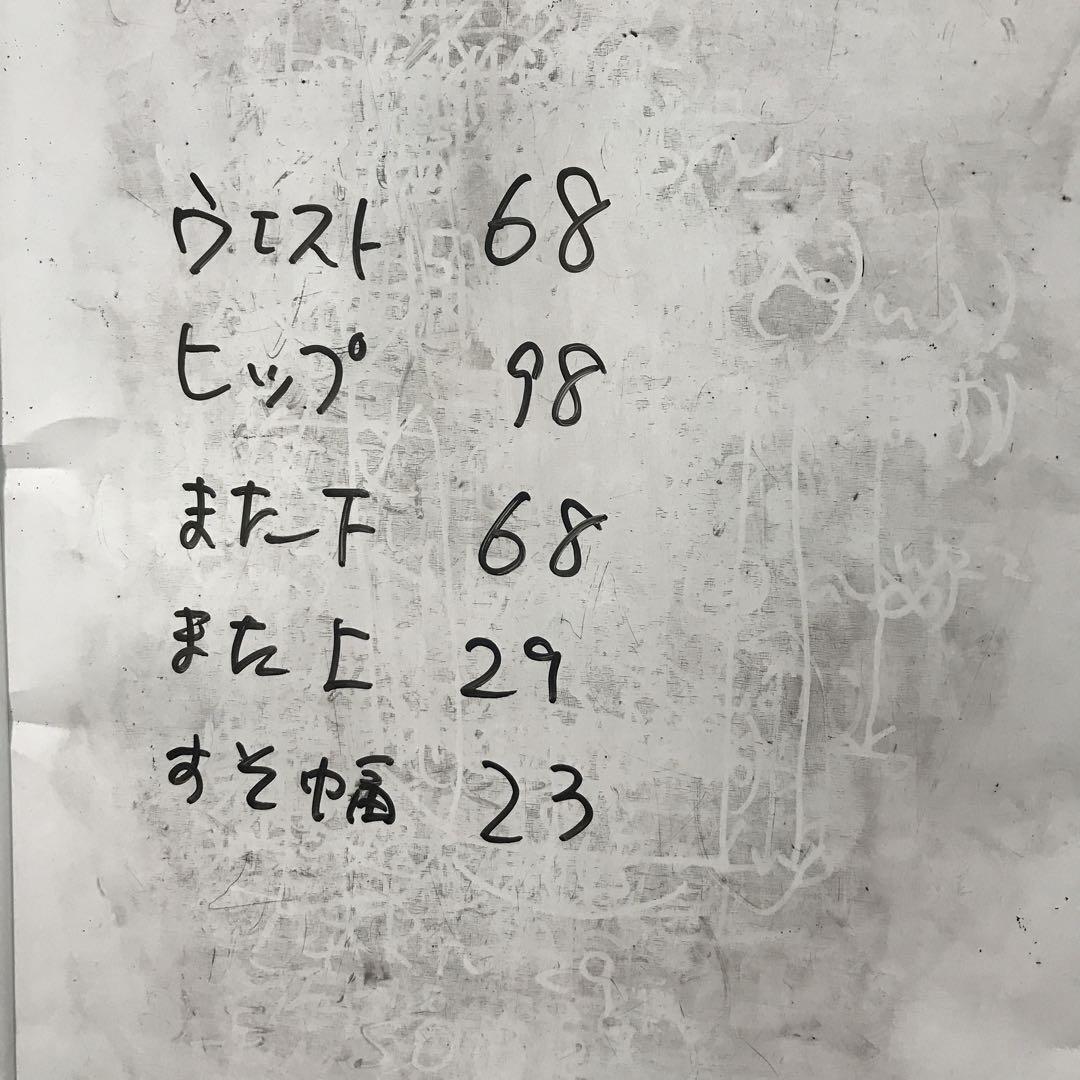 ウエスト 68
ヒップ 98
また下 68
また上 29
すそ幅 23